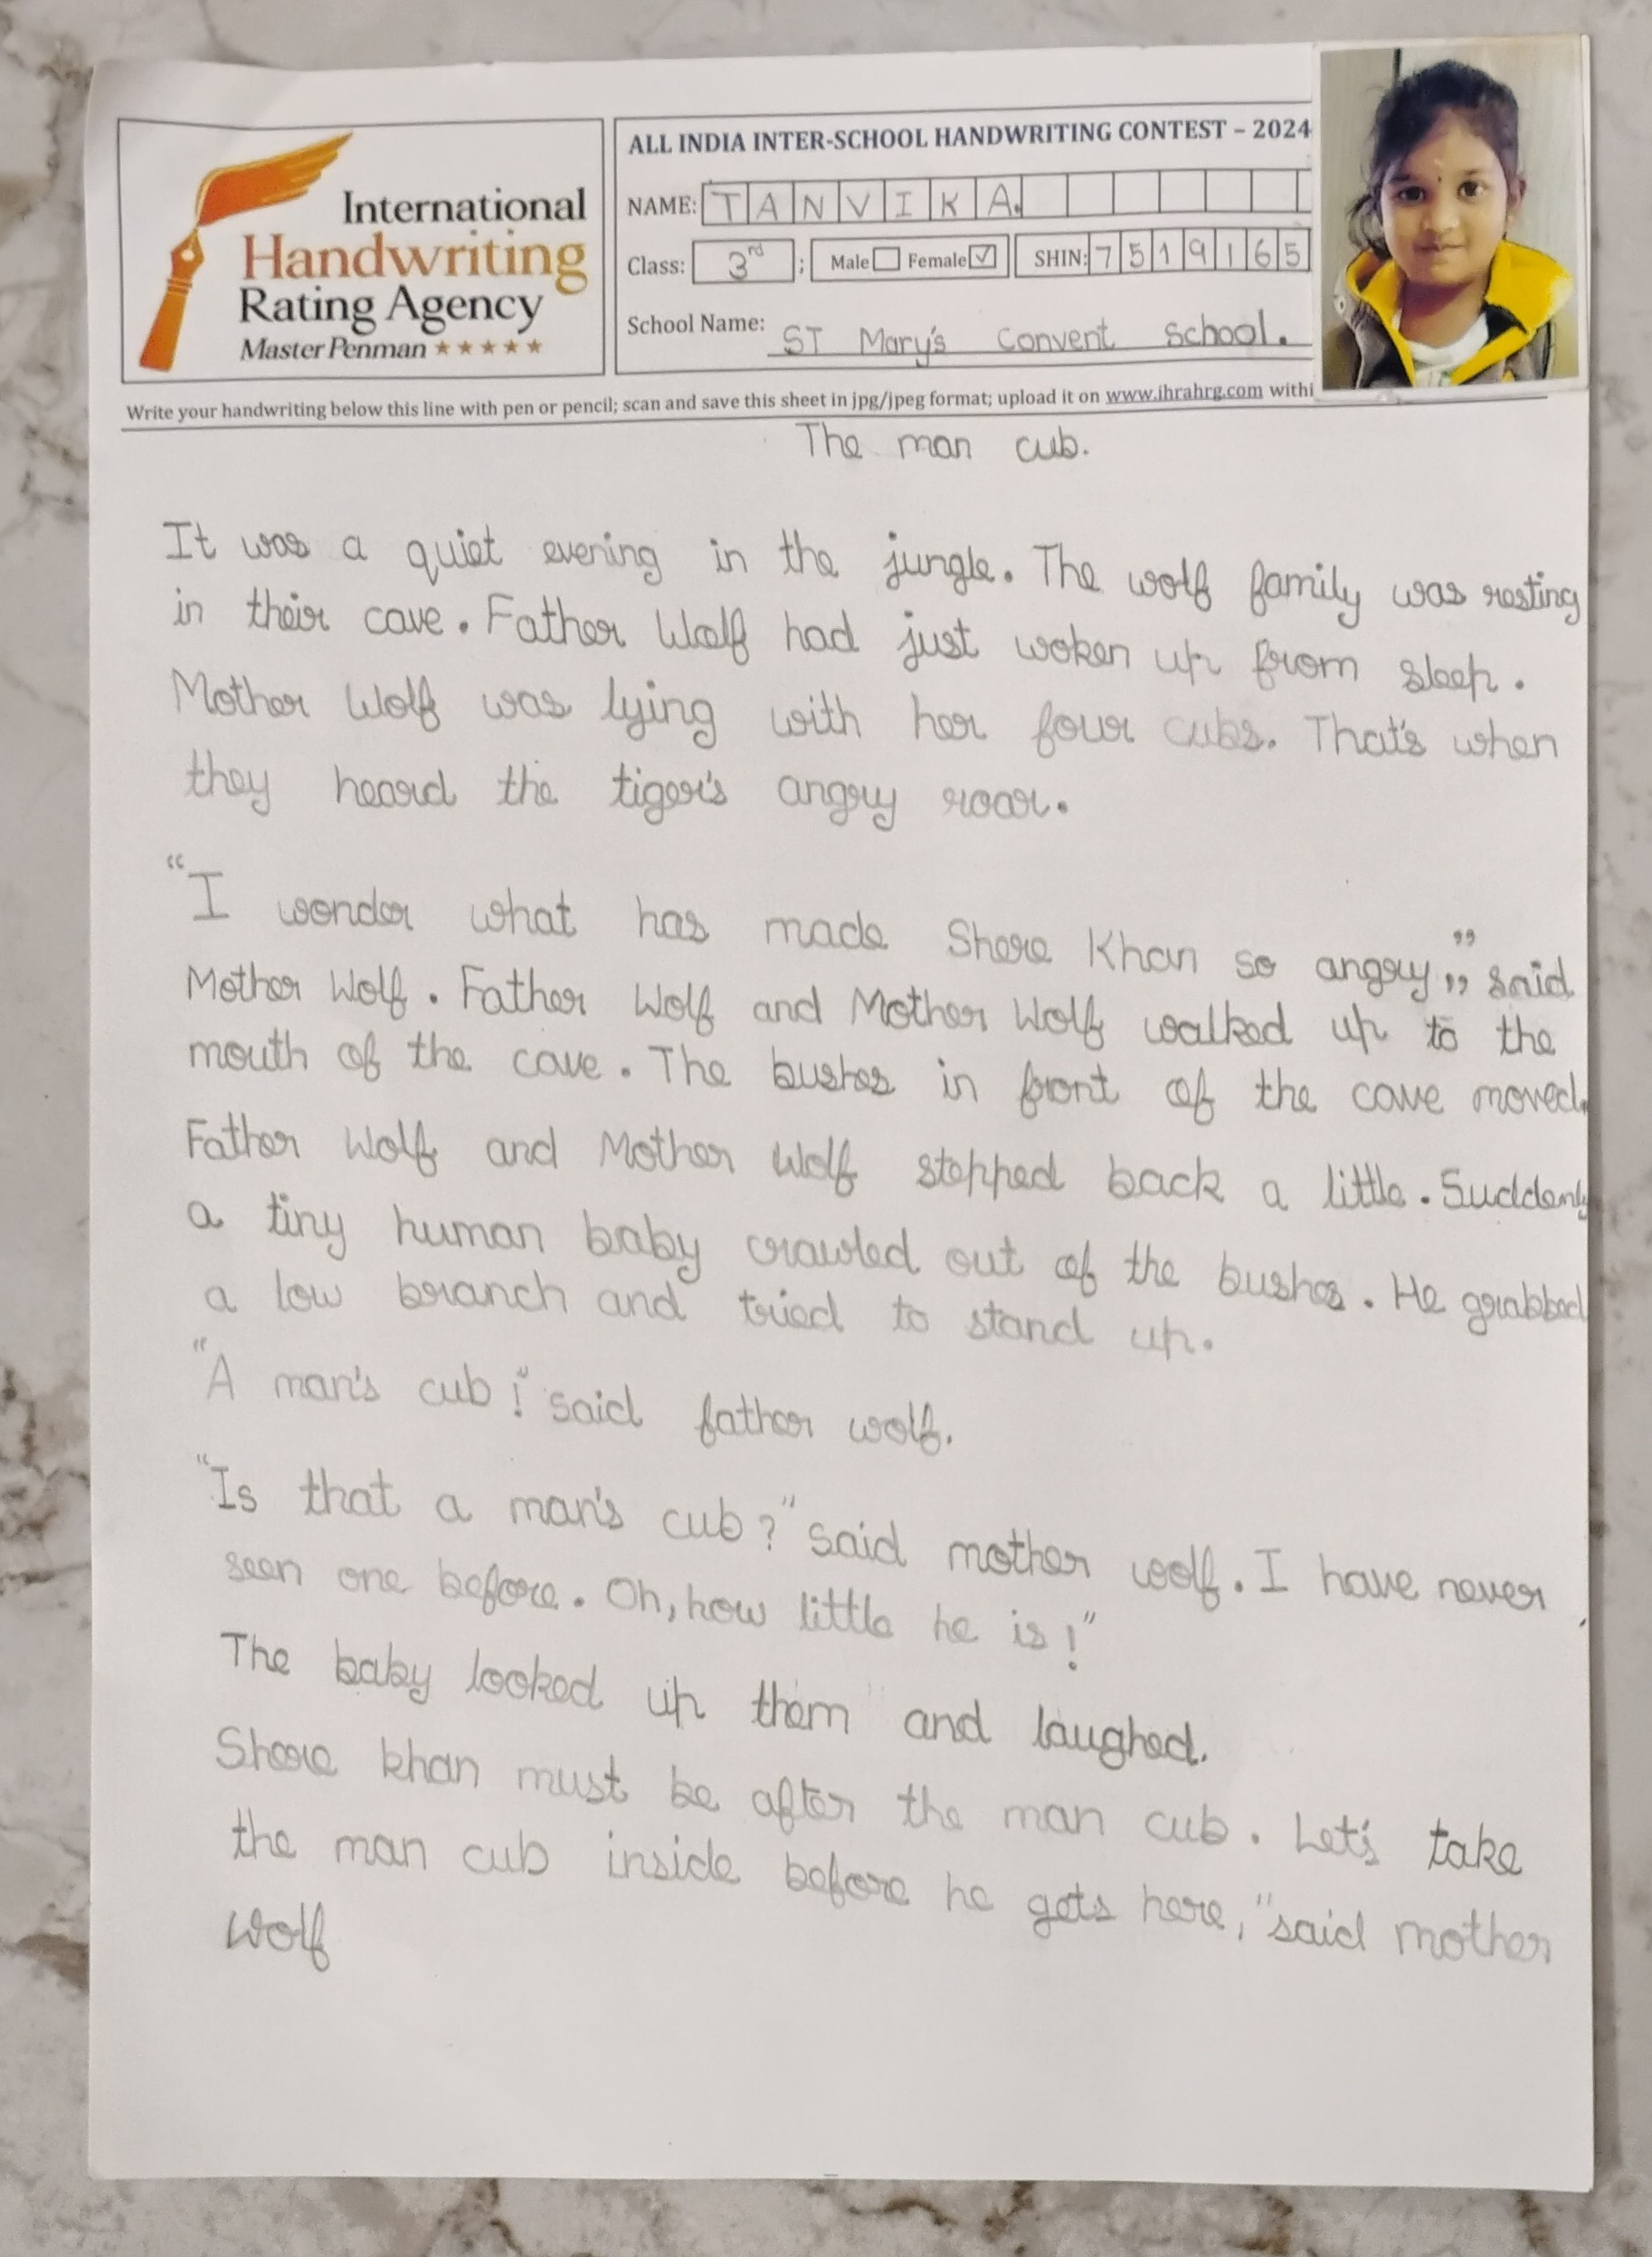 International
Handwriting
Rating Agency
Master Penman ★★★★★
ALL INDIA INTER-SCHOOL HANDWRITING CONTEST – 2024
NAME: TANVIKA.
Class: 3rd ; Male Female ✓ SHIN: 7519165
School Name: ST Mary's Convent School.
Write your handwriting below this line with pen or pencil; scan and save this sheet in jpg/jpeg format; upload it on www.ihrahrg.com withi
The man cub.
It was a quiet evening in the jungle. The wolf family was resting
in their cave. Father Wolf had just woken up from sleep.
Mother Wolf was lying with her four cubs. That's when
they heard the tiger's angry roar.
"I wonder what has made Shere Khan so angry,," said
Mother Wolf. Father Wolf and Mother Wolf walked up to the
mouth of the cave. The bushes in front of the cave moved.
Father Wolf and Mother Wolf stepped back a little. Suddenly
a tiny human baby crawled out of the bushes. He grabbed
a low branch and tried to stand up.
"A man's cub!" said father wolf.
"Is that a man's cub?" said mother wolf. I have never
seen one before. Oh, how little he is!"
The baby looked up them and laughed.
Shere khan must be after the man cub. Let's take
the man cub inside before he gets here," said mother
wolf